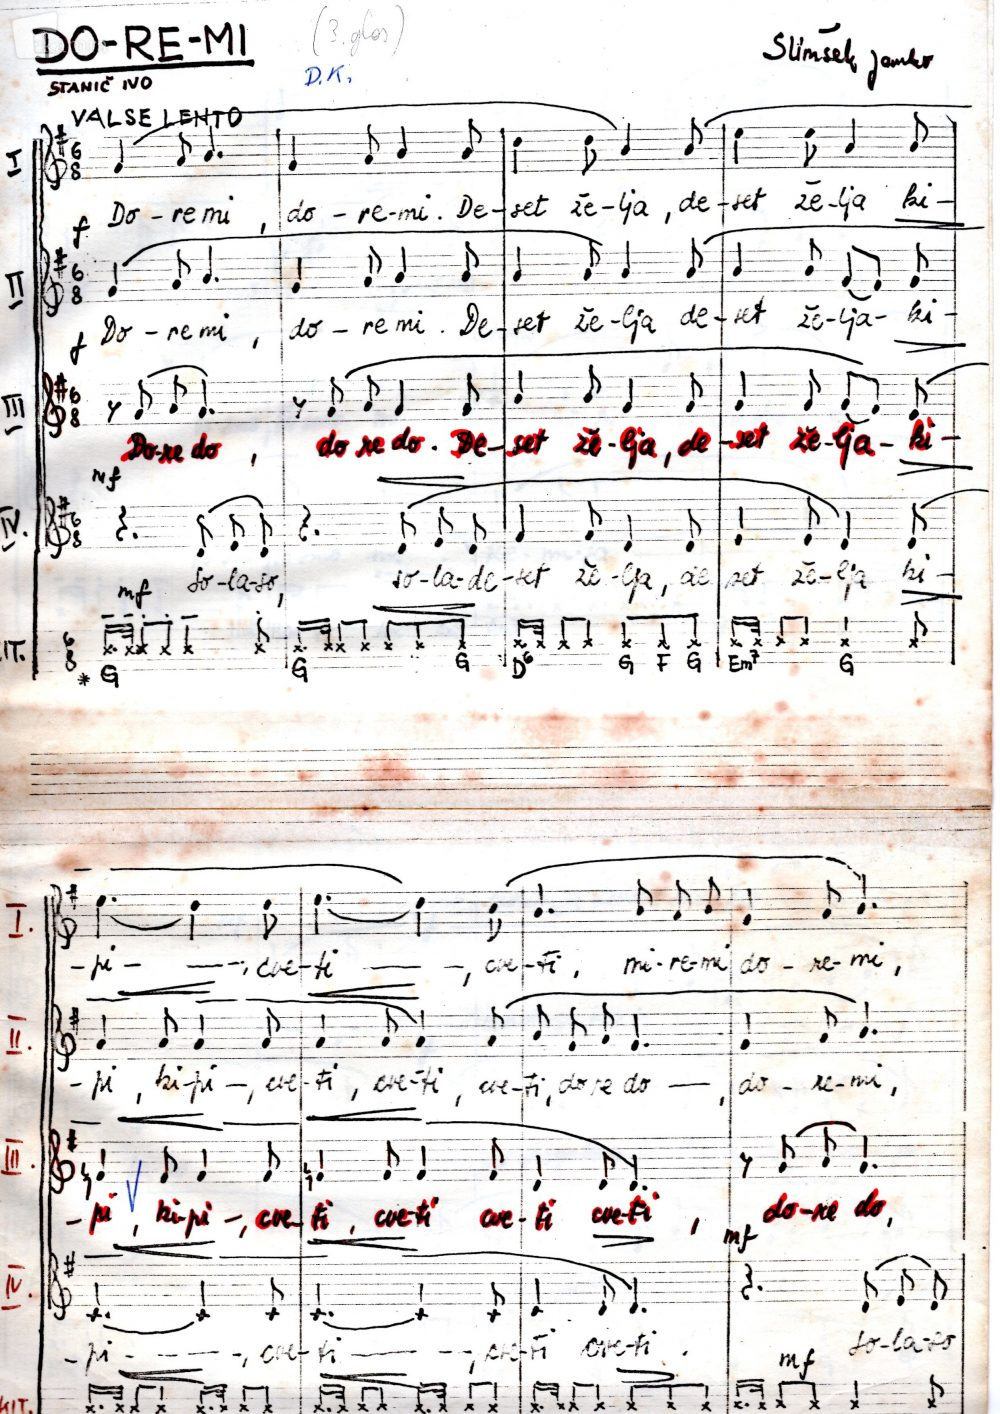 DO-RE-MI
(3. glas)
STANIČ IVO
D.K.
Slimšek Janko
VALSE LENTO
I
6
8
f Do - re mi , do - re-mi. De-set že-lja, de-set že-lja ki-
II
6
8
f Do - re mi , do - re mi. De-set že-lja de-set že-lja- ki-
III
6
8
mf Do-re do , do re do. De-set že-lja, de-set že-lja- ki-
IV.
6
8
mf so-la-so, so-la-de-set že-lja, de set že-lja ki-
IT.
6
8
* G G G D6 G F G Em7 G
I.
- pi - - - -, cve-ti - - -, cve-ti, mi-re-mi do - re-mi,
II.
- pi , ki-pi -, cve-ti , cve-ti , cve-ti, do re do — , do - re-mi,
III.
- pi , ki-pi -, cve-ti , cve-ti cve-ti cve-ti , mf do-re do,
IV.
- pi - - - -, cve-ti - - - -, cve-ti cve-ti . mf so-la-so
KIT.